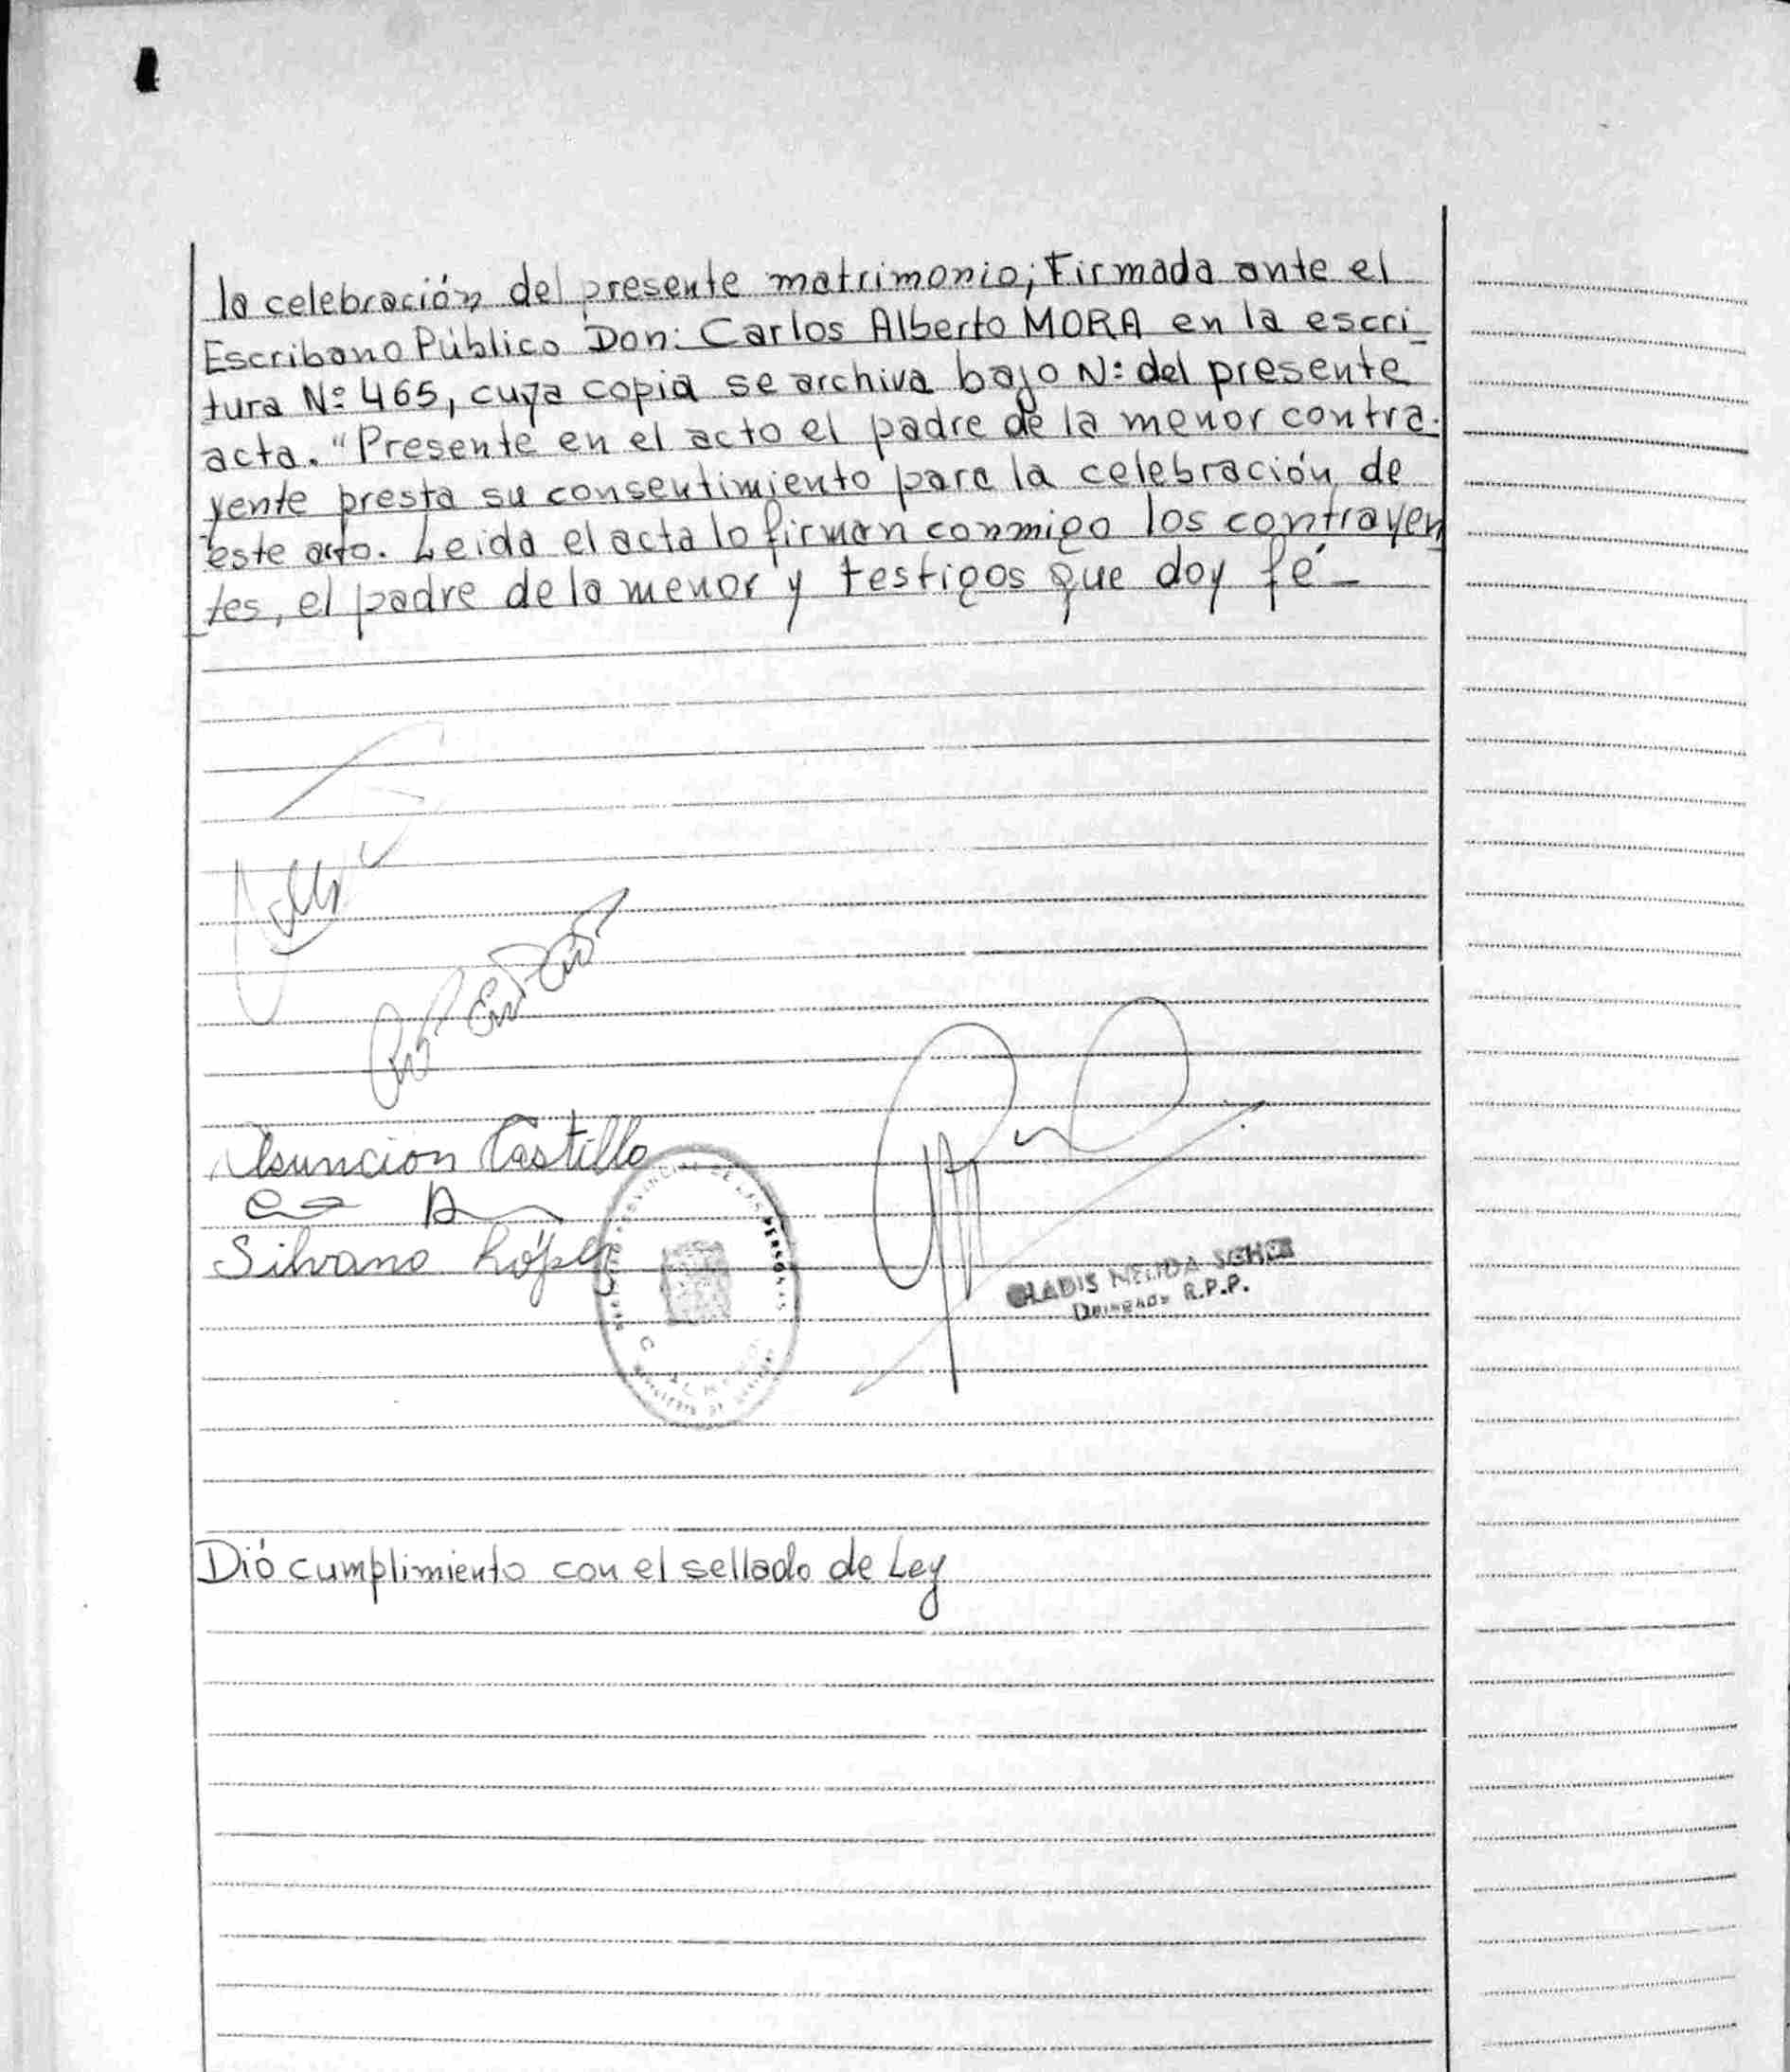 la celebración del presente matrimonio; Firmada ante el
Escribano Público Don: Carlos Alberto MORA en la escri_
tura Nº 465, cuya copia se archiva bajo Nº del presente
acta. "Presente en el acto el padre de la menor contra.
yente presta su consentimiento para la celebración de
este acto. Leida el acta lo firman conmigo los contrayen
tes, el padre de la menor y testigos que doy fé_
Asuncion Castillo
Silvano López
GLADIS NELIDA
R.P.P.
Dió cumplimiento con el sellado de Ley